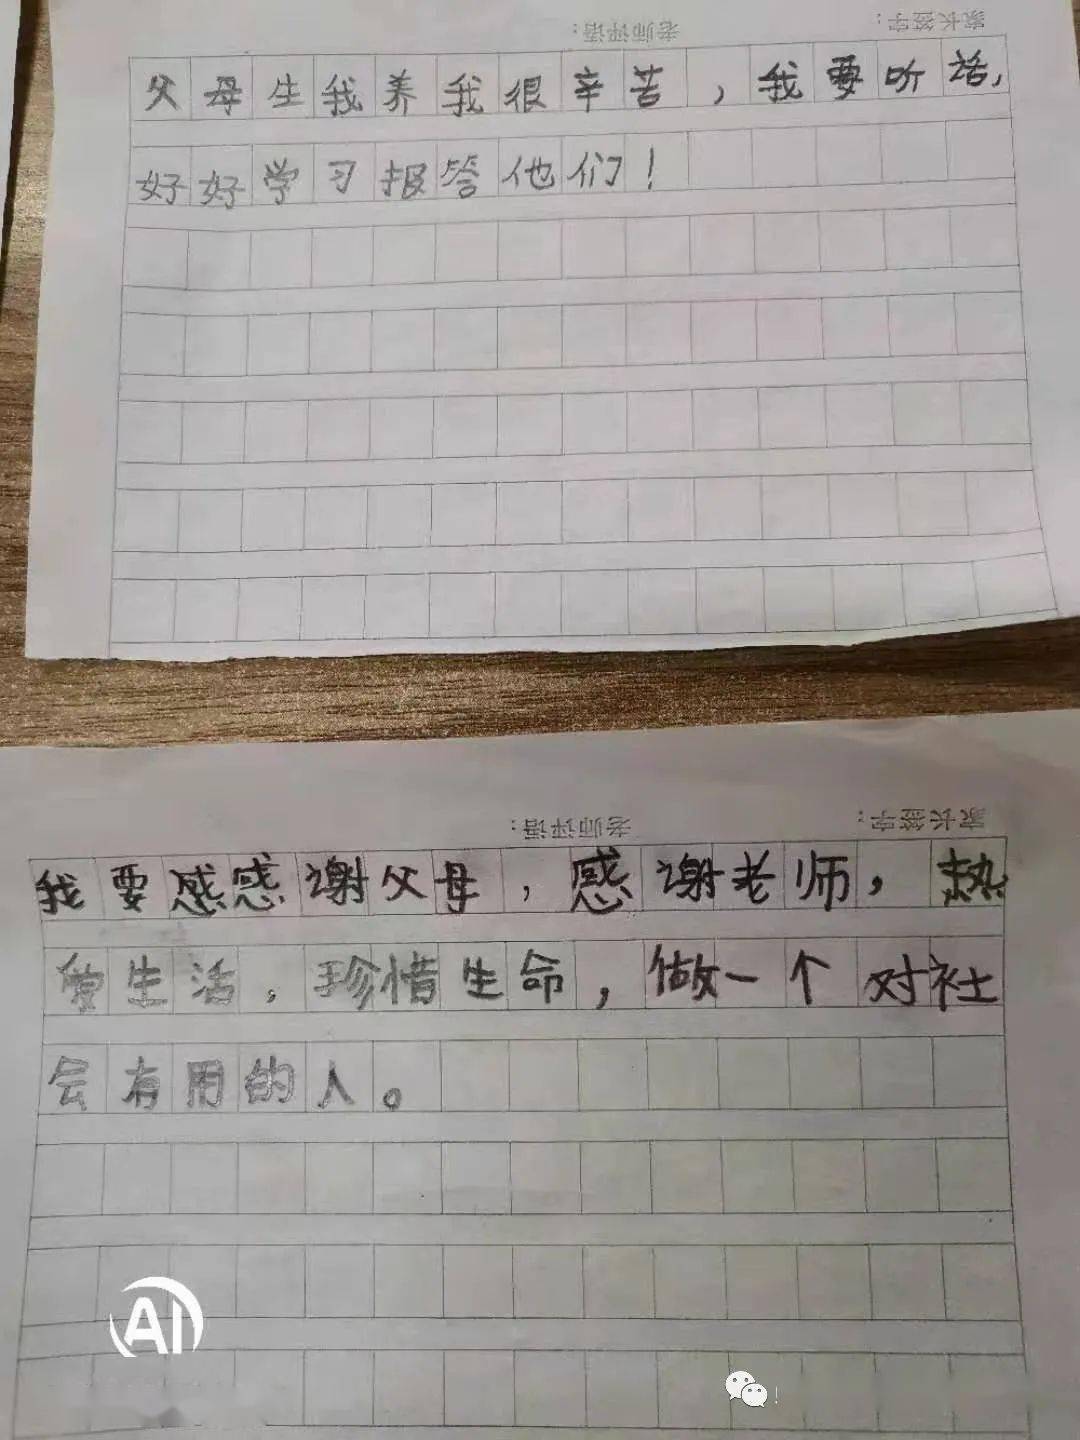 老师评语： 家长签字：
父母生我养我很辛苦，我要听话，
好好学习报答他们！
老师评语： 家长签字：
我要感感谢父母，感谢老师，热
爱生活，珍惜生命，做一个对社
会有用的人。
AI